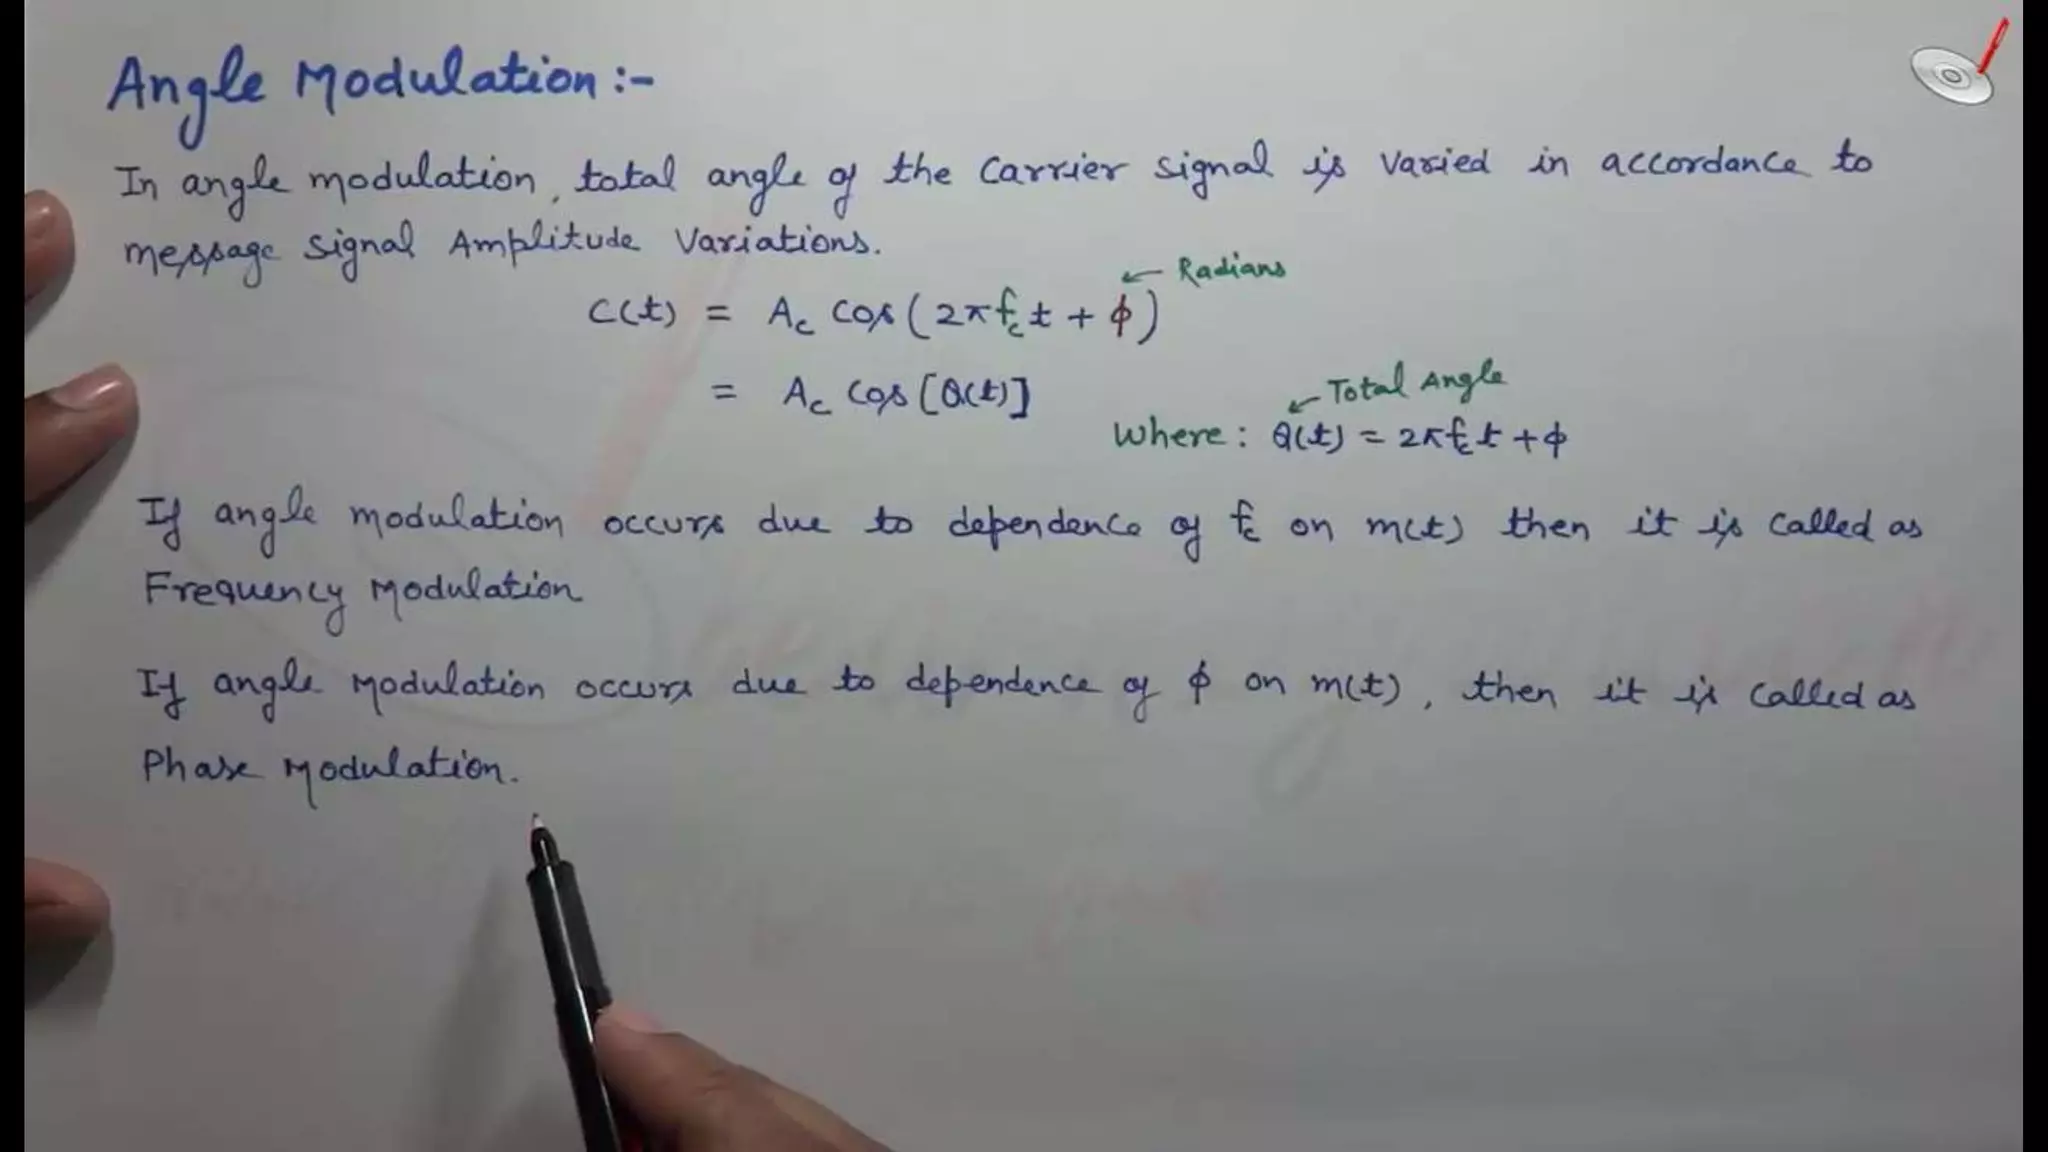 Angle Modulation :-
In angle modulation, total angle of the carrier signal is varied in accordance to
message signal Amplitude variations.
← Radians
C(t) = Ac Cos(2πfct + ϕ)
= Ac Cos[θ(t)]
← Total Angle
Where: θ(t) = 2πfct + ϕ
If angle modulation occurs due to dependence of fc on m(t) then it is called as
Frequency Modulation
If angle modulation occurs due to dependence of ϕ on m(t), then it is called as
Phase Modulation.